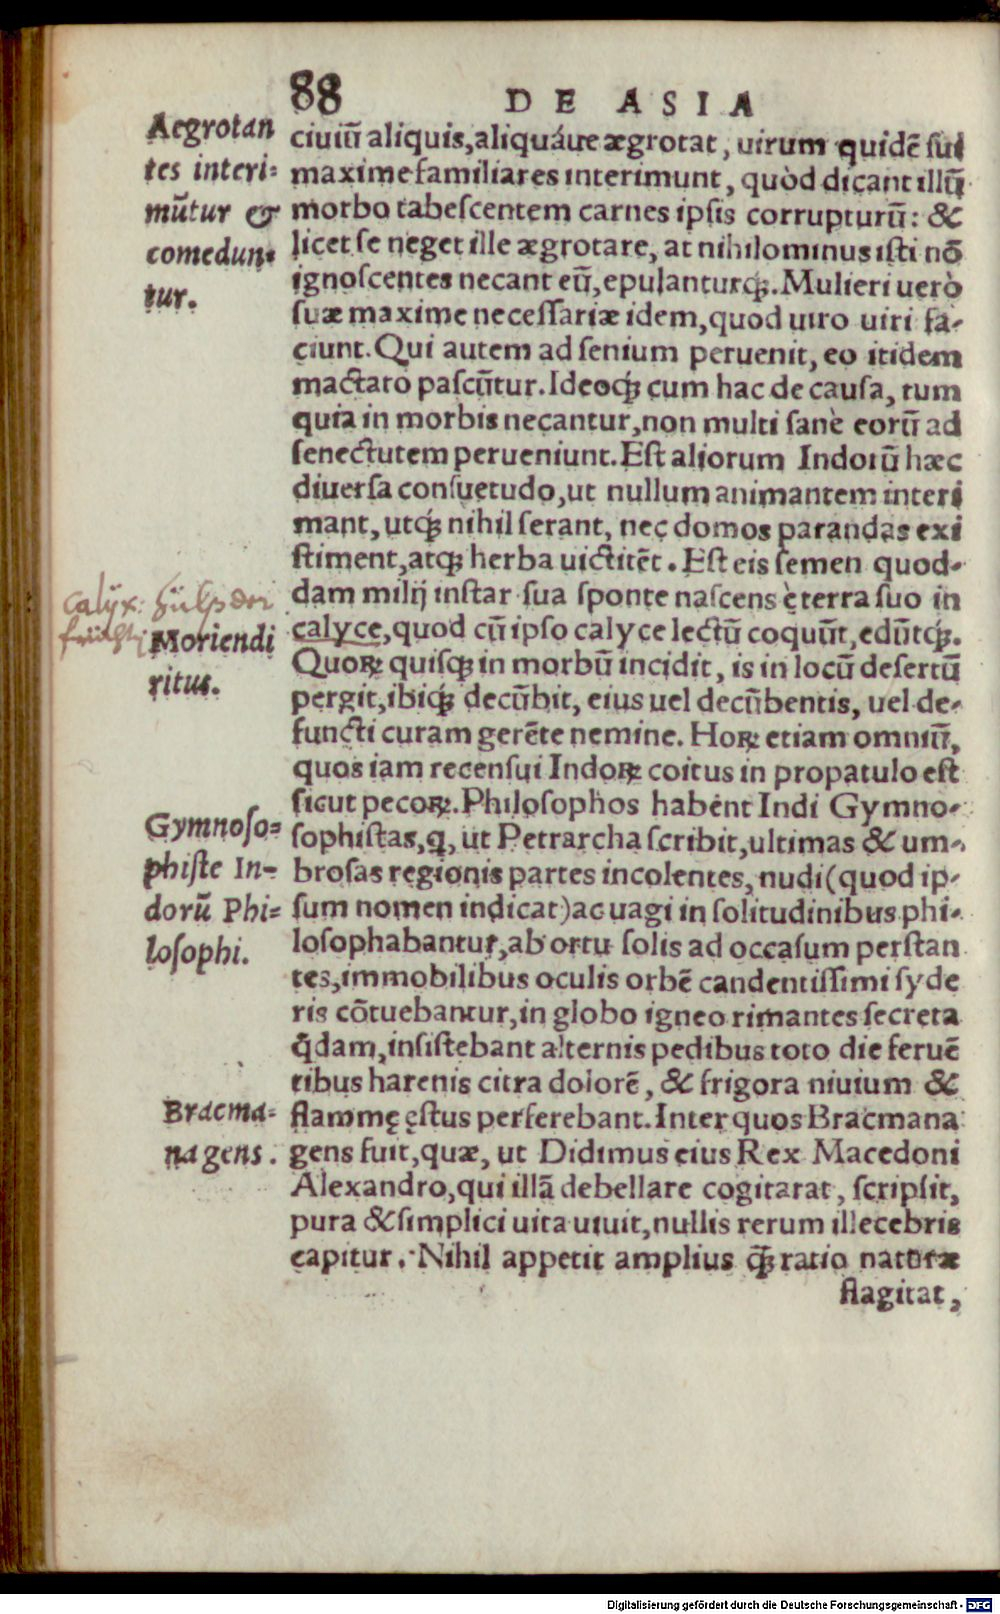 88 DE ASIA
Aegrotan
tes interi-
mũtur &
comedun-
tur.
ciuiũ aliquis, aliquáue ægrotat, uirum quidẽ sui
maxime familiares interimunt, quòd dicant illũ
morbo tabescentem carnes ipsis corrupturũ: &
licet se neget ille ægrotare, at nihilominus isti nõ
ignoscentes necant eũ, epulanturq́;. Mulieri uerò
suæ maxime necessariæ idem, quod uiro uiri fa-
ciunt. Qui autem ad senium peruenit, eo itidem
mactato pascũtur. Ideoq́; cum hac de causa, tum
quia in morbis necantur, non multi sanè eorũ ad
senectutem perueniunt. Est aliorum Indorũ hæc
diuersa consuetudo, ut nullum animantem interi
mant, utq́; nihil serant, nec domos parandas exi
stiment, atq́; herba uictitẽt. Est eis semen quod-
dam milij instar sua sponte nascens è terra suo in
calyce, quod cũ ipso calyce lectũ coquũt, edũtq́;.
Quoꝝ quisq́; in morbũ incidit, is in locũ desertũ
pergit, ibiq́; decũbit, eius uel decũbentis, uel de-
functi curam gerẽte nemine. Hoꝝ etiam omniũ,
quos iam recensui Indoꝝ coitus in propatulo est
sicut pecoꝝ. Philosophos habent Indi Gymno-
sophistas, q, ut Petrarcha scribit, ultimas & um-
brosas regionis partes incolentes, nudi (quod ip-
sum nomen indicat) ac uagi in solitudinibus phi-
losophabantur, ab ortu solis ad occasum perstan
tes, immobilibus oculis orbẽ candentissimi syde
ris cõtuebantur, in globo igneo rimantes secreta
q̃dam, insistebant alternis pedibus toto die feruẽ
tibus harenis citra dolorẽ, & frigora niuium &
flammę ęstus perferebant. Inter quos Bracmana
gens fuit, quæ, ut Didimus eius Rex Macedoni
Alexandro, qui illã debellare cogitarat, scripsit,
pura & simplici uita uiuit, nullis rerum illecebris
capitur. Nihil appetit amplius q̃; ratio naturæ
flagitat,
calÿx: Hülß der
früchtẽ
Moriendi
ritus.
Gymnoso-
phiste In-
dorũ Phi-
losophi.
Bracma-
na gens.
Digitalisierung gefördert durch die Deutsche Forschungsgemeinschaft - DFG